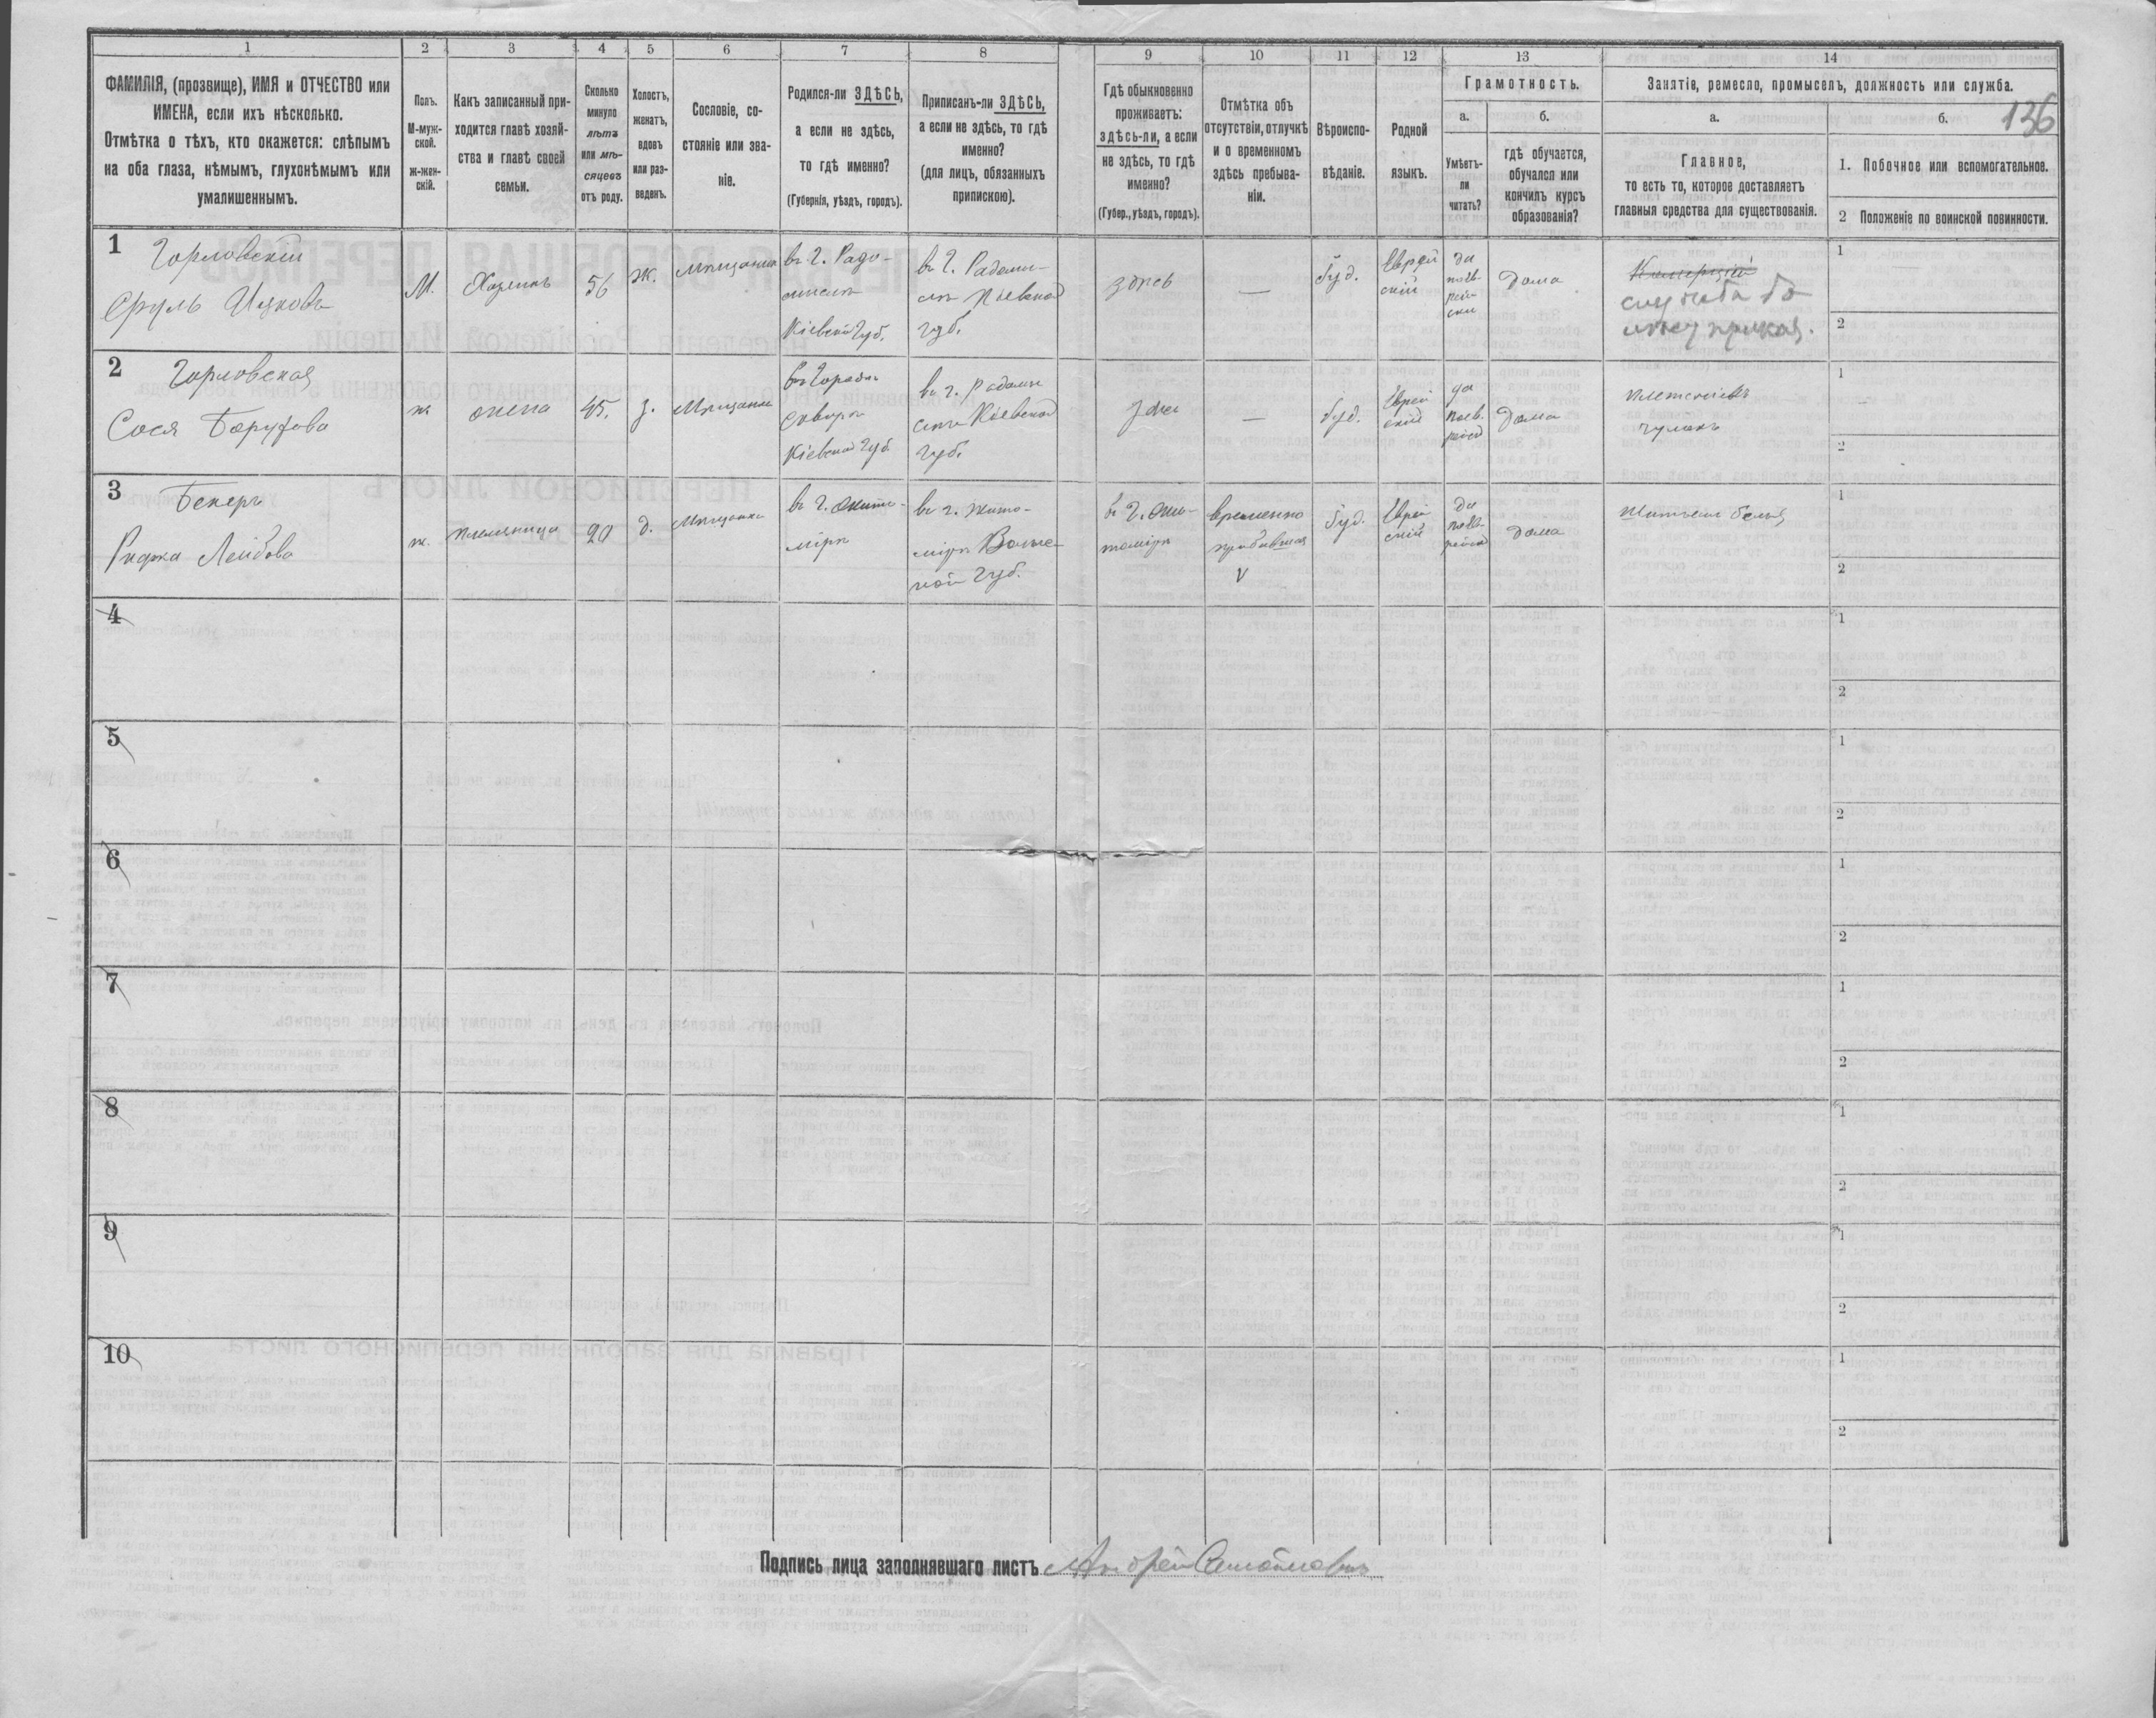 136
1 2 3 4 5 6 7 8 9 10 11 12 13 14
ФАМИЛІЯ, (прозвище), ИМЯ и ОТЧЕСТВО или
ИМЕНА, если ихъ нѣсколько.
Отмѣтка о тѣхъ, кто окажется: слѣпымъ
на оба глаза, нѣмымъ, глухонѣмымъ или
умалишеннымъ.
Полъ.
М-муж-
ской.
ж-жен-
скій.
Какъ записанный при-
ходится главѣ хозяй-
ства и главѣ своей
семьи.
Сколько
минуло
лѣтъ
или мѣ-
сяцевъ
отъ роду.
Холостъ,
женатъ,
вдовъ
или раз-
веденъ.
Сословіе, со-
стояніе или зва-
ніе.
Родился-ли ЗДѢСЬ,
а если не здѣсь,
то гдѣ именно?
(Губернія, уѣздъ, городъ).
Приписанъ-ли ЗДѢСЬ,
а если не здѣсь, то гдѣ
именно?
(для лицъ, обязанныхъ
припискою).
Гдѣ обыкновенно
проживаетъ:
здѣсь-ли, а если
не здѣсь, то гдѣ
именно?
(Губер., уѣздъ, городъ).
Отмѣтка объ
отсутствіи, отлучкѣ
и о временномъ
здѣсь пребыва-
ніи.
Вѣроиспо-
вѣданіе.
Родной
языкъ.
Грамотность.
а.
Умѣетъ-
ли
читать?
б.
гдѣ обучается,
обучался или
кончилъ курсъ
образованія?
Занятіе, ремесло, промыселъ, должность или служба.
а.
Главное,
то есть то, которое доставляетъ
главныя средства для существованія.
б.
1. Побочное или вспомогательное.
2 Положеніе по воинской повинности.
1
Горловскій
Сруль Ицковъ
М.
Хозяинъ
56
Ж.
Мѣщанинъ
въ г. Радо-
мыслѣ
Кіевской Губ.
въ г. Радомы-
слѣ Кіевской
Губ.
здѣсь
—
Іуд.
Еврей
скій
да
по ев-
рей-
ски
Дома
служба
1
2
2
Горловская
Сося Борухова
ж.
жена
45.
З.
Мѣщанка
въ Городѣ
Сквирѣ
Кіевской Губ.
въ г. Радомы
слѣ Кіевской
Губ.
здѣсь
—
Іуд.
Еврей
скій
да
по ев.
рейски
Дома
чулокъ
1
2
3
Бекеръ
Ривка Лейбова
ж.
племяница
20
д.
Мѣщанка
въ г. Жито-
мірѣ
въ г. Жито-
мірѣ Волын-
ской Губ.
въ г. Жи-
томірѣ
временно
прибывшая
V
Іуд.
Еврей
скій
да
по ев-
рейски
Дома
Шитьемъ белья
1
2
4
1
2
5
1
2
6
1
2
7
1
2
8
1
2
9
1
2
10
1
2
Подпись лица заполнявшаго листъ Андрей